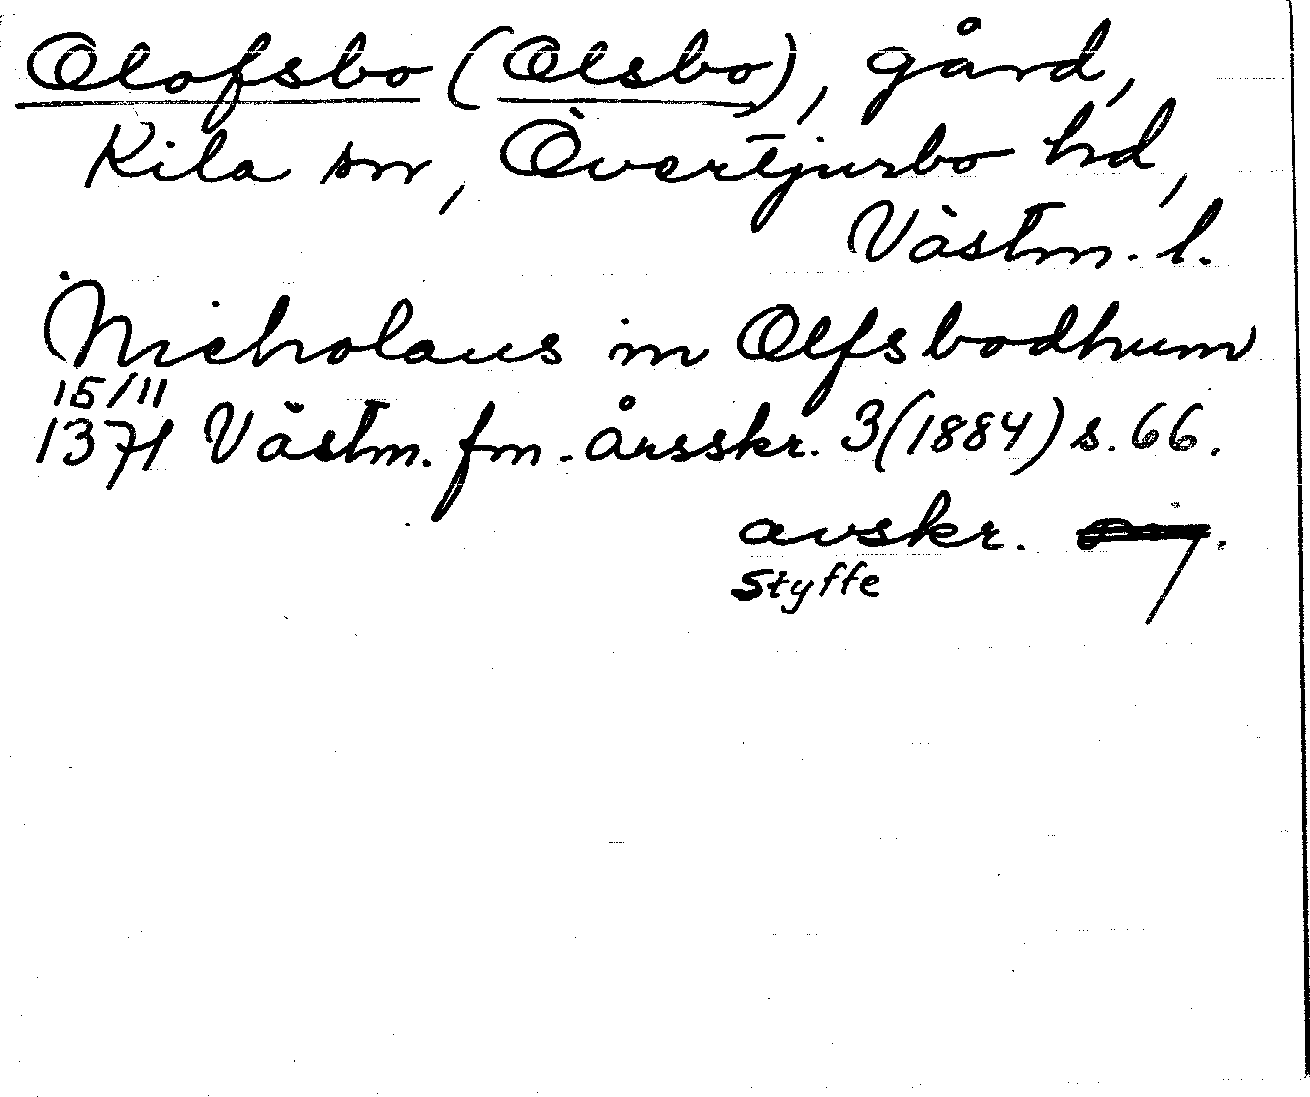 Olofsbo (Olsbo), gård,
Kila sn, Övertjurbo hd,
Västm. l.
Nicholaus in Olfsbodhum
15/11
1371 Västm. fm. årsskr. 3(1884) s. 66.
avskr.
Styffe